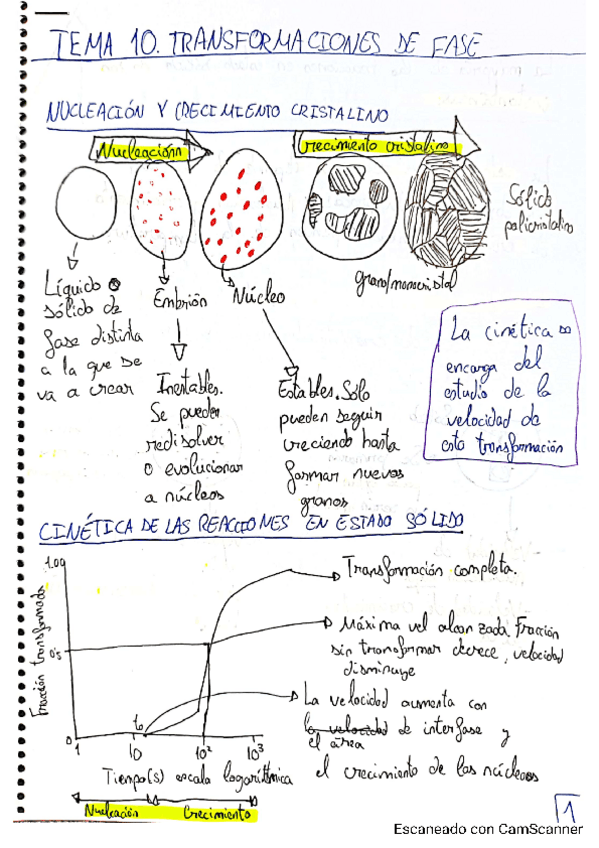 TEMA 10. TRANSFORMACIONES DE FASE
NUCLEACIÓN Y CRECIMIENTO CRISTALINO
Nucleación
Crecimiento cristalino
Sólido
policristalino
grano/monocristal
Líquido o
sólido de
fase distinta
a la que se
va a crear
Embrión
Núcleo
Inestables.
Se pueden
redisolver
o evolucionar
a núcleos
Estables. Sólo
pueden seguir
creciendo hasta
formar nuevos
granos
La cinética se
encarga del
estudio de la
velocidad de
esta transformación
CINÉTICA DE LAS REACCIONES EN ESTADO SÓLIDO
Fracción transformada
1.00
0's
0
t₀
1
10
10²
10³
Tiempo(s) escala logarítmica
Nucleación
Crecimiento
Transformación completa.
Máxima vel alcanzada. Fracción
sin transformar decrece, velocidad
disminuye
La velocidad aumenta con
la velocidad de interfase y
el área
el crecimiento de los núcleos
1
Escaneado con CamScanner